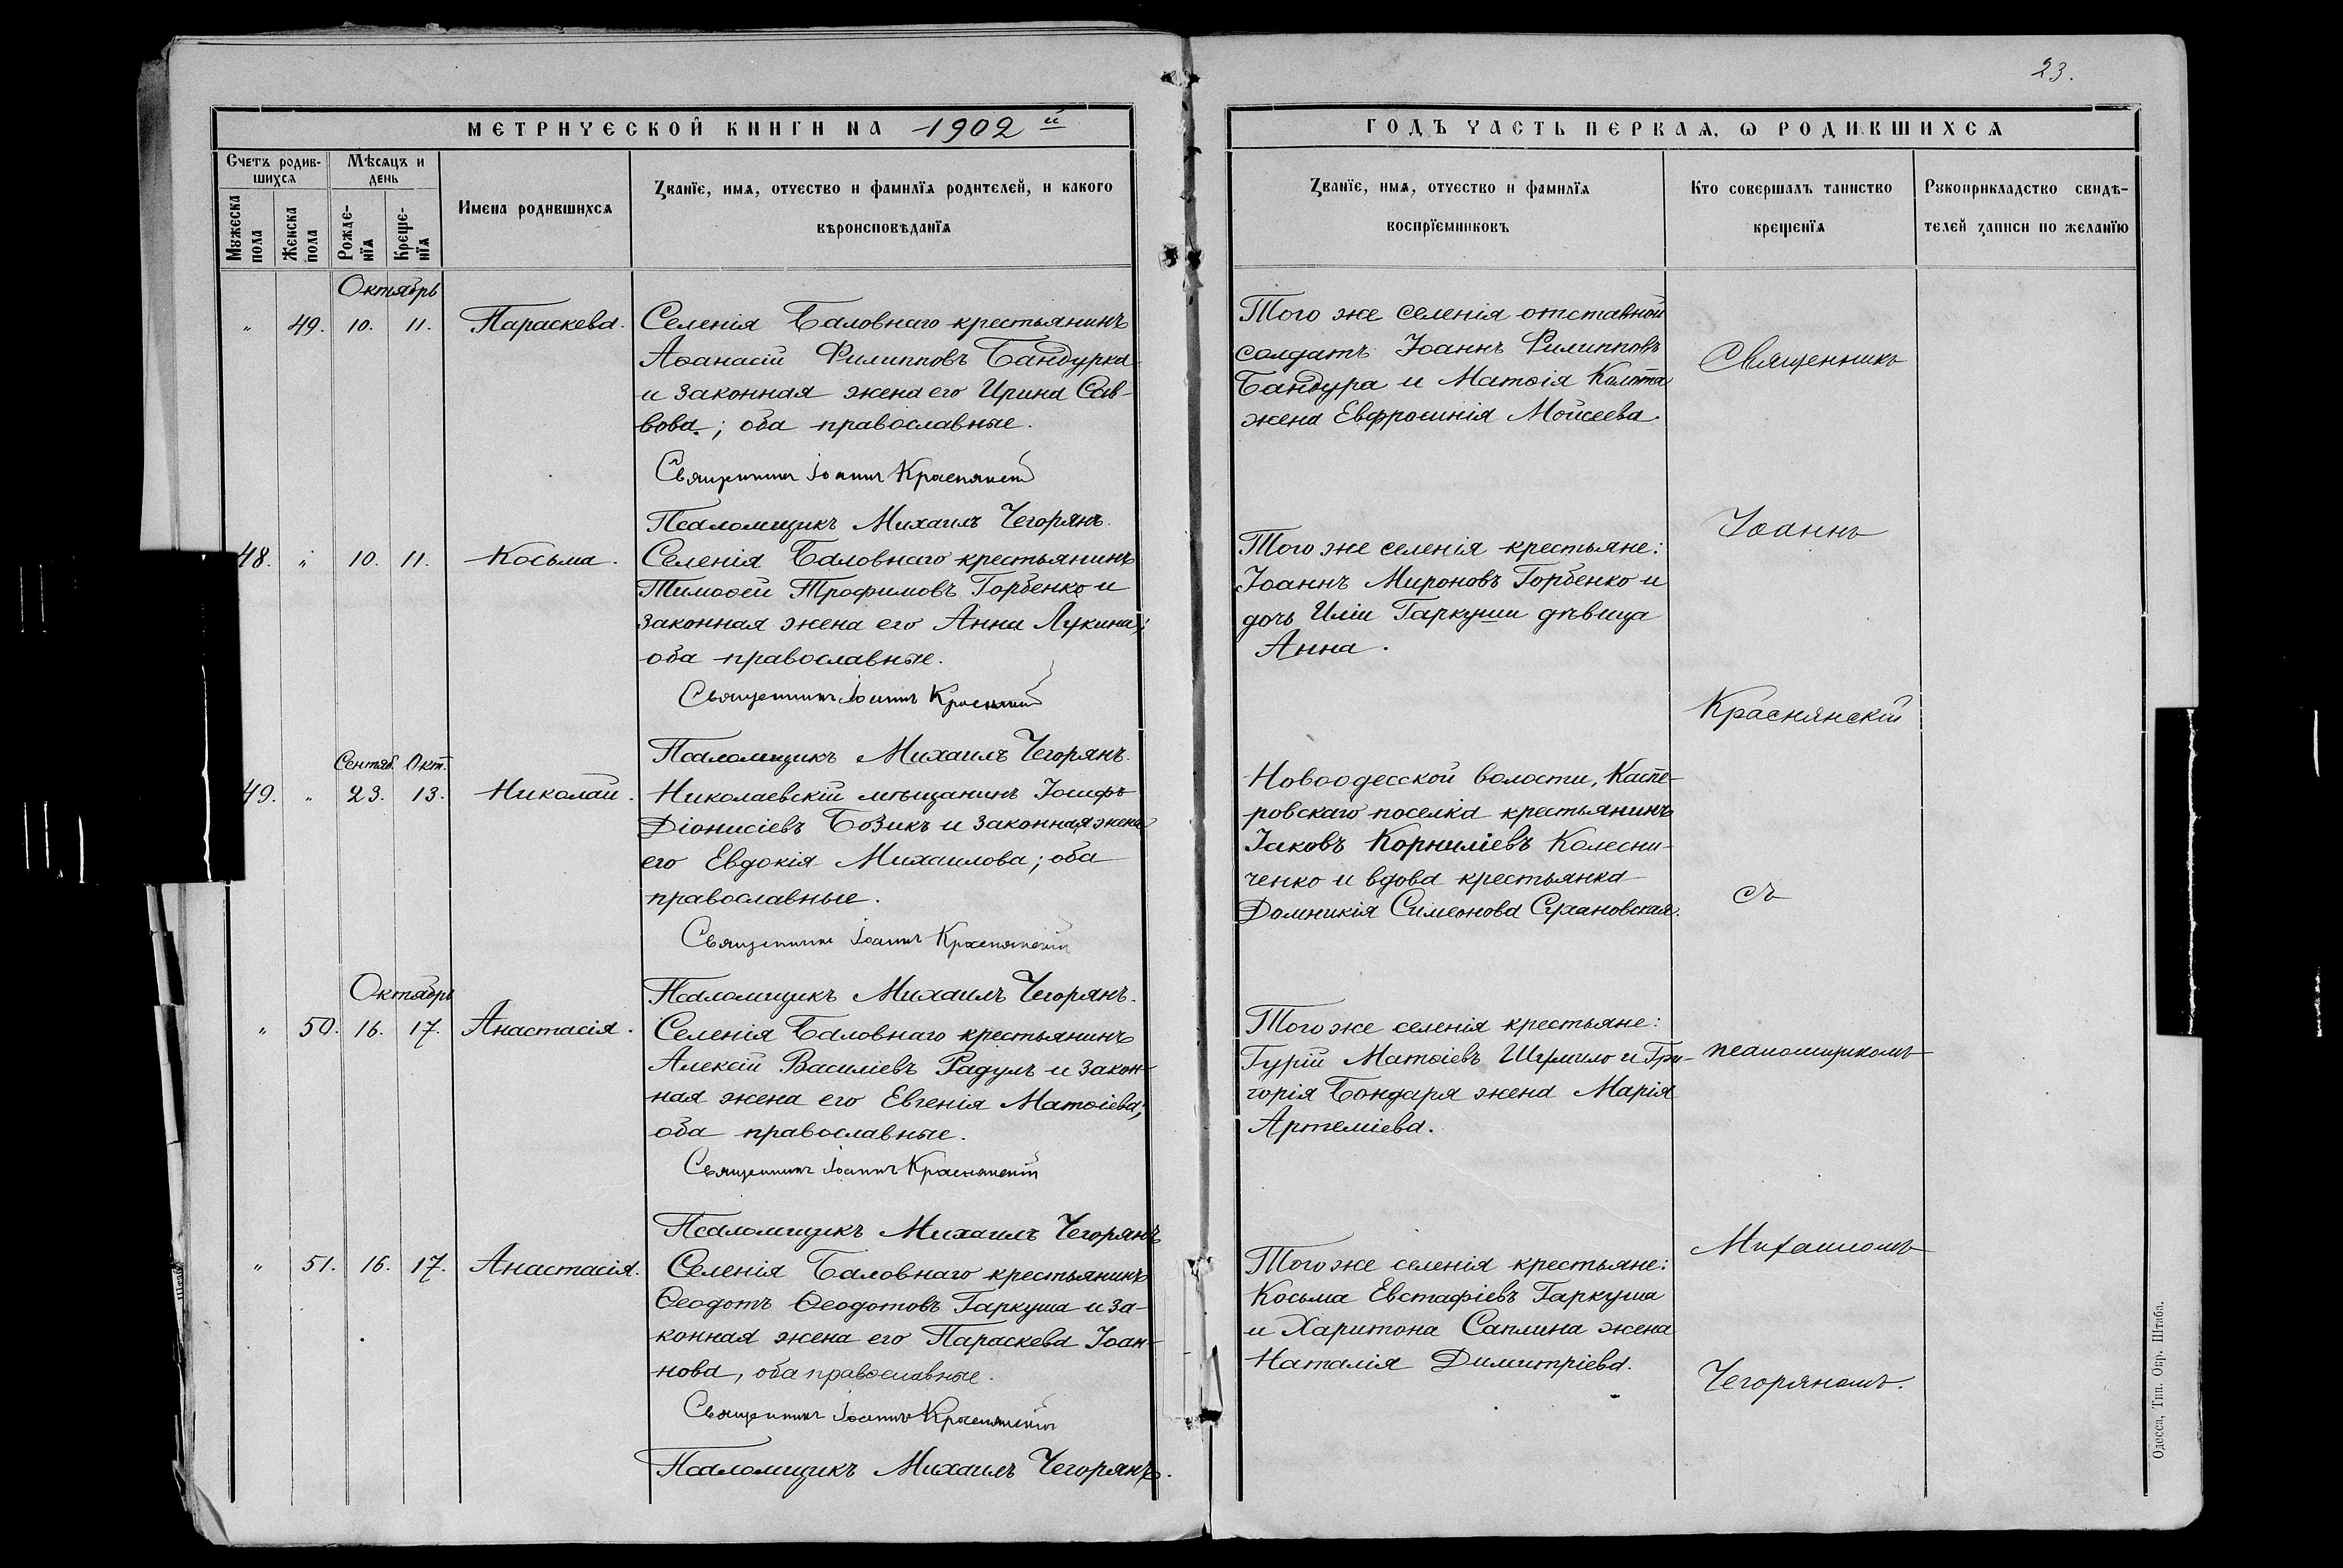 23.
МЕТРИЧЕСКОЙ КНИГИ НА 1902 й
Счетъ родив-
шихся
Мѣсяцъ и
день
Мужеска
пола
Женска
пола
Рожде-
нїя
Креще-
нїя
Имена родившихся
Званїе, имя, отчество и фамилїя родителей, и какого
вѣроисповѣданїя
Октябрь
" 49. 10. 11. Параскева. Селенія Баловнаго крестьянинъ
Аѳанасій Филипповъ Бандурка
и законная жена его Ирина Сав-
вова; оба православные.
Священникъ Іоаннъ Краснянскій
Псаломщикъ Михаилъ Чегорянъ.
48. " 10. 11. Косьма. Селенія Баловнаго крестьянинъ
Тимоѳей Трофимовъ Горбенко и
законная жена его Анна Лукина;
оба православные.
Священникъ Іоаннъ Краснянскій
Псаломщикъ Михаилъ Чегорянъ.
Сентяб. Окт.
49. " 23. 13. Николай. Николаевскій мѣщанинъ Іосифъ
Діонисіевъ Бозикъ и законная жена
его Евдокія Михаилова; оба
православные.
Священникъ Іоаннъ Краснянскій
Псаломщикъ Михаилъ Чегорянъ.
Октябрь
" 50. 16. 17. Анастасія. Селенія Баловнаго крестьянинъ
Алексій Василіевъ Радулъ и закон-
ная жена его Евгенія Матѳіева;
оба православные.
Священникъ Іоаннъ Краснянскій
Псаломщикъ Михаилъ Чегорянъ
" 51. 16. 17. Анастасія. Селенія Баловнаго крестьянинъ
Ѳеодотъ Ѳеодотовъ Гаркуша и за-
конная жена его Параскева Іоан-
нова, оба православные.
Священникъ Іоаннъ Краснянскій
Псаломщикъ Михаилъ Чегорянъ.
ГОДЪ ЧАСТЬ ПЕРВАЯ, Ѡ РОДИВШИХСЯ
Званїе, имя, отчество и фамилїя
воспрїемниковъ
Кто совершалъ таинство
крещенїя
Рукоприкладство свидѣ-
телей записи по желанїю
Того же селенія отставной
солдатъ Іоаннъ Филипповъ
Бандура и Матѳія Колпта
жена Евфросинія Моисеева.
Того же селенія крестьяне:
Іоаннъ Мироновъ Горбенко и
дочь Иліи Гаркуши дѣвица
Анна.
Новоодесской волости, Каспе-
ровскаго поселка крестьянинъ
Іаковъ Корниліевъ Колесни-
ченко и вдова крестьянка
Домникія Симеонова Сухановская.
Того же селенія крестьяне:
Гурій Матѳіевъ Шумило и Гри-
горія Бондаря жена Марія
Артеміева.
Того же селенія крестьяне:
Косьма Евстафіевъ Гаркуша
и Харитона Саплина жена
Наталія Димитріева.
Священникъ
Іоаннъ
Краснянскій
съ
псаломщикомъ
Михаиломъ
Чегоряномъ.
Одесса, Тип. Окр. Штаба.